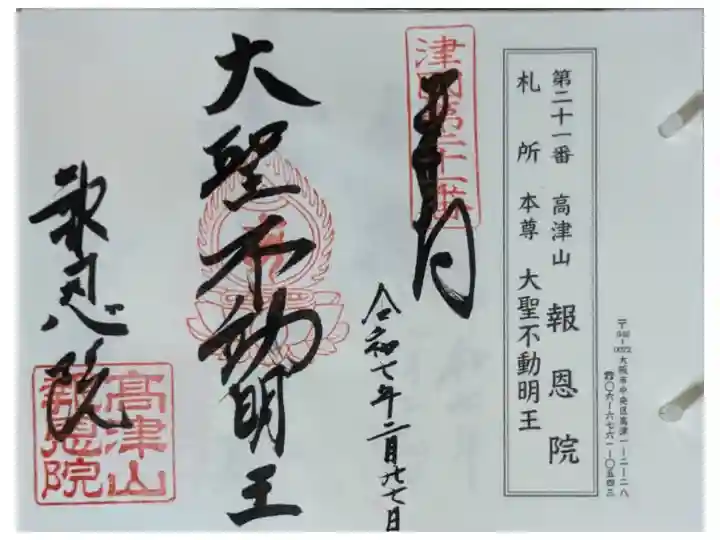 〒542-0072大阪市中央区高津一-二-二八
☎〇六-六七六一-〇五四三
第二十一番 高津山 報恩院
札所 本尊 大聖不動明王
津国第二十一番
奉拝
令和七年二月廿七日
大聖不動明王
報恩院
高津山
報恩院